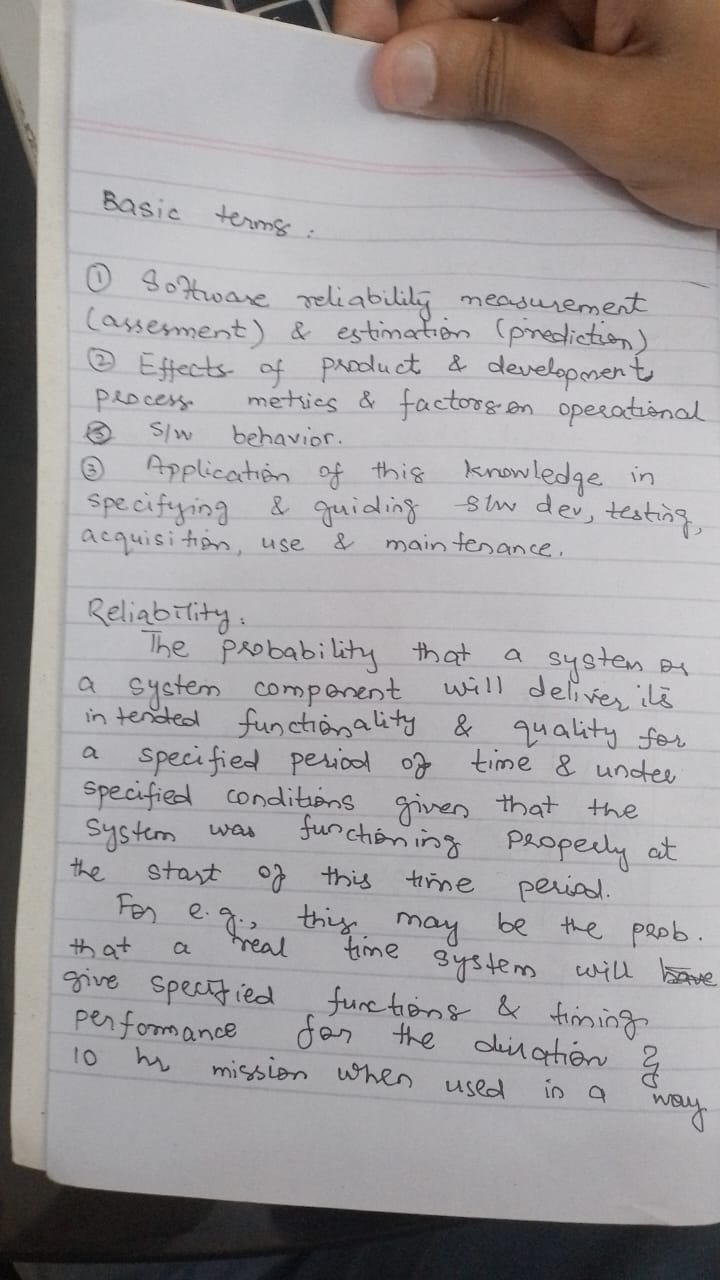 Basic terms :
① Software reliability measurement
(assesment) & estimation (prediction)
② Effects of product & development
process metrics & factors on operational
③ S/w behavior.
③ Application of this knowledge in
specifying & guiding S/w dev, testing,
acquisition, use & maintenance.
Reliability :
The probability that a system or
a system component will deliver its
intended functionality & quality for
a specified period of time & under
specified conditions given that the
system was functioning properly at
the start of this time period.
For e.g., this may be the prob.
that a real time system will have
give specified functions & timing
performance for the duration of
10 hr mission when used in a way